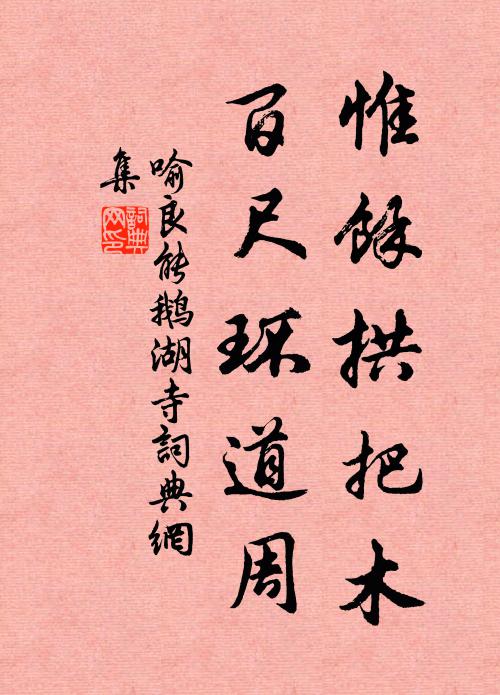 惟餘拱把木
百尺环道周
喻良能鵝湖寺詞典網
集
詞典网印